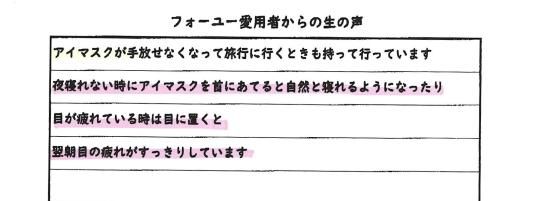 フォーユー愛用者からの生の声
アイマスクが手放せなくなって旅行に行くときも持って行っています
夜寝れない時にアイマスクを首にあてると自然と寝れるようになったり
目が疲れている時は目に置くと
翌朝目の疲れがすっきりしています